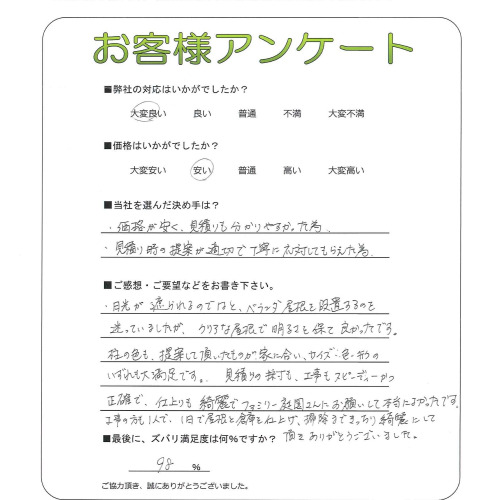 お客様アンケート
■弊社の対応はいかがでしたか?
大変良い 良い 普通 不満 大変不満
■価格はいかがでしたか?
大変安い 安い 普通 高い 大変高い
■当社を選んだ決め手は?
・価格が安く、見積りも分かりやすかった為。
・見積り時の提案が適切で丁寧に対応してもらえた為。
■ご感想・ご要望などをお書き下さい。
・日光が遮られるのではと、ベランダ屋根を設置するのを
迷っていましたが、クリアな屋根で明るさも保て良かったです。
柱の色も、提案して頂いたものが家に合い、サイズ・色・形の
いずれも大満足です。見積りの採寸も、工事もスピーディーかつ
正確で、仕上りも綺麗でファミリー庭園さんにお願いして本当によかったです。
工事の方も1人で、1日で屋根と倉庫を仕上げ、掃除まできっちり綺麗にして
頂きありがとうございました。
■最後に、ズバリ満足度は何%ですか?
98 %
ご協力頂き、誠にありがとうございました。